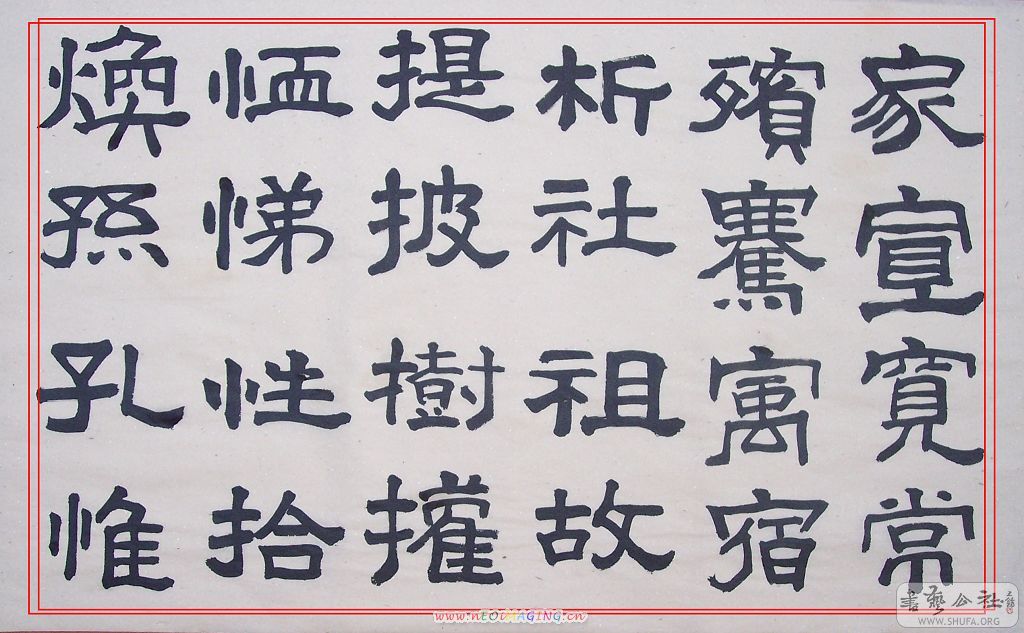 家宣寬常
殯騫寓宿
析社祖故
提披樹擢
恓悌性拾
煥孫孔惟
書藝公社
WWW.SHUFA.ORG
www.nEOiMAGING.cn